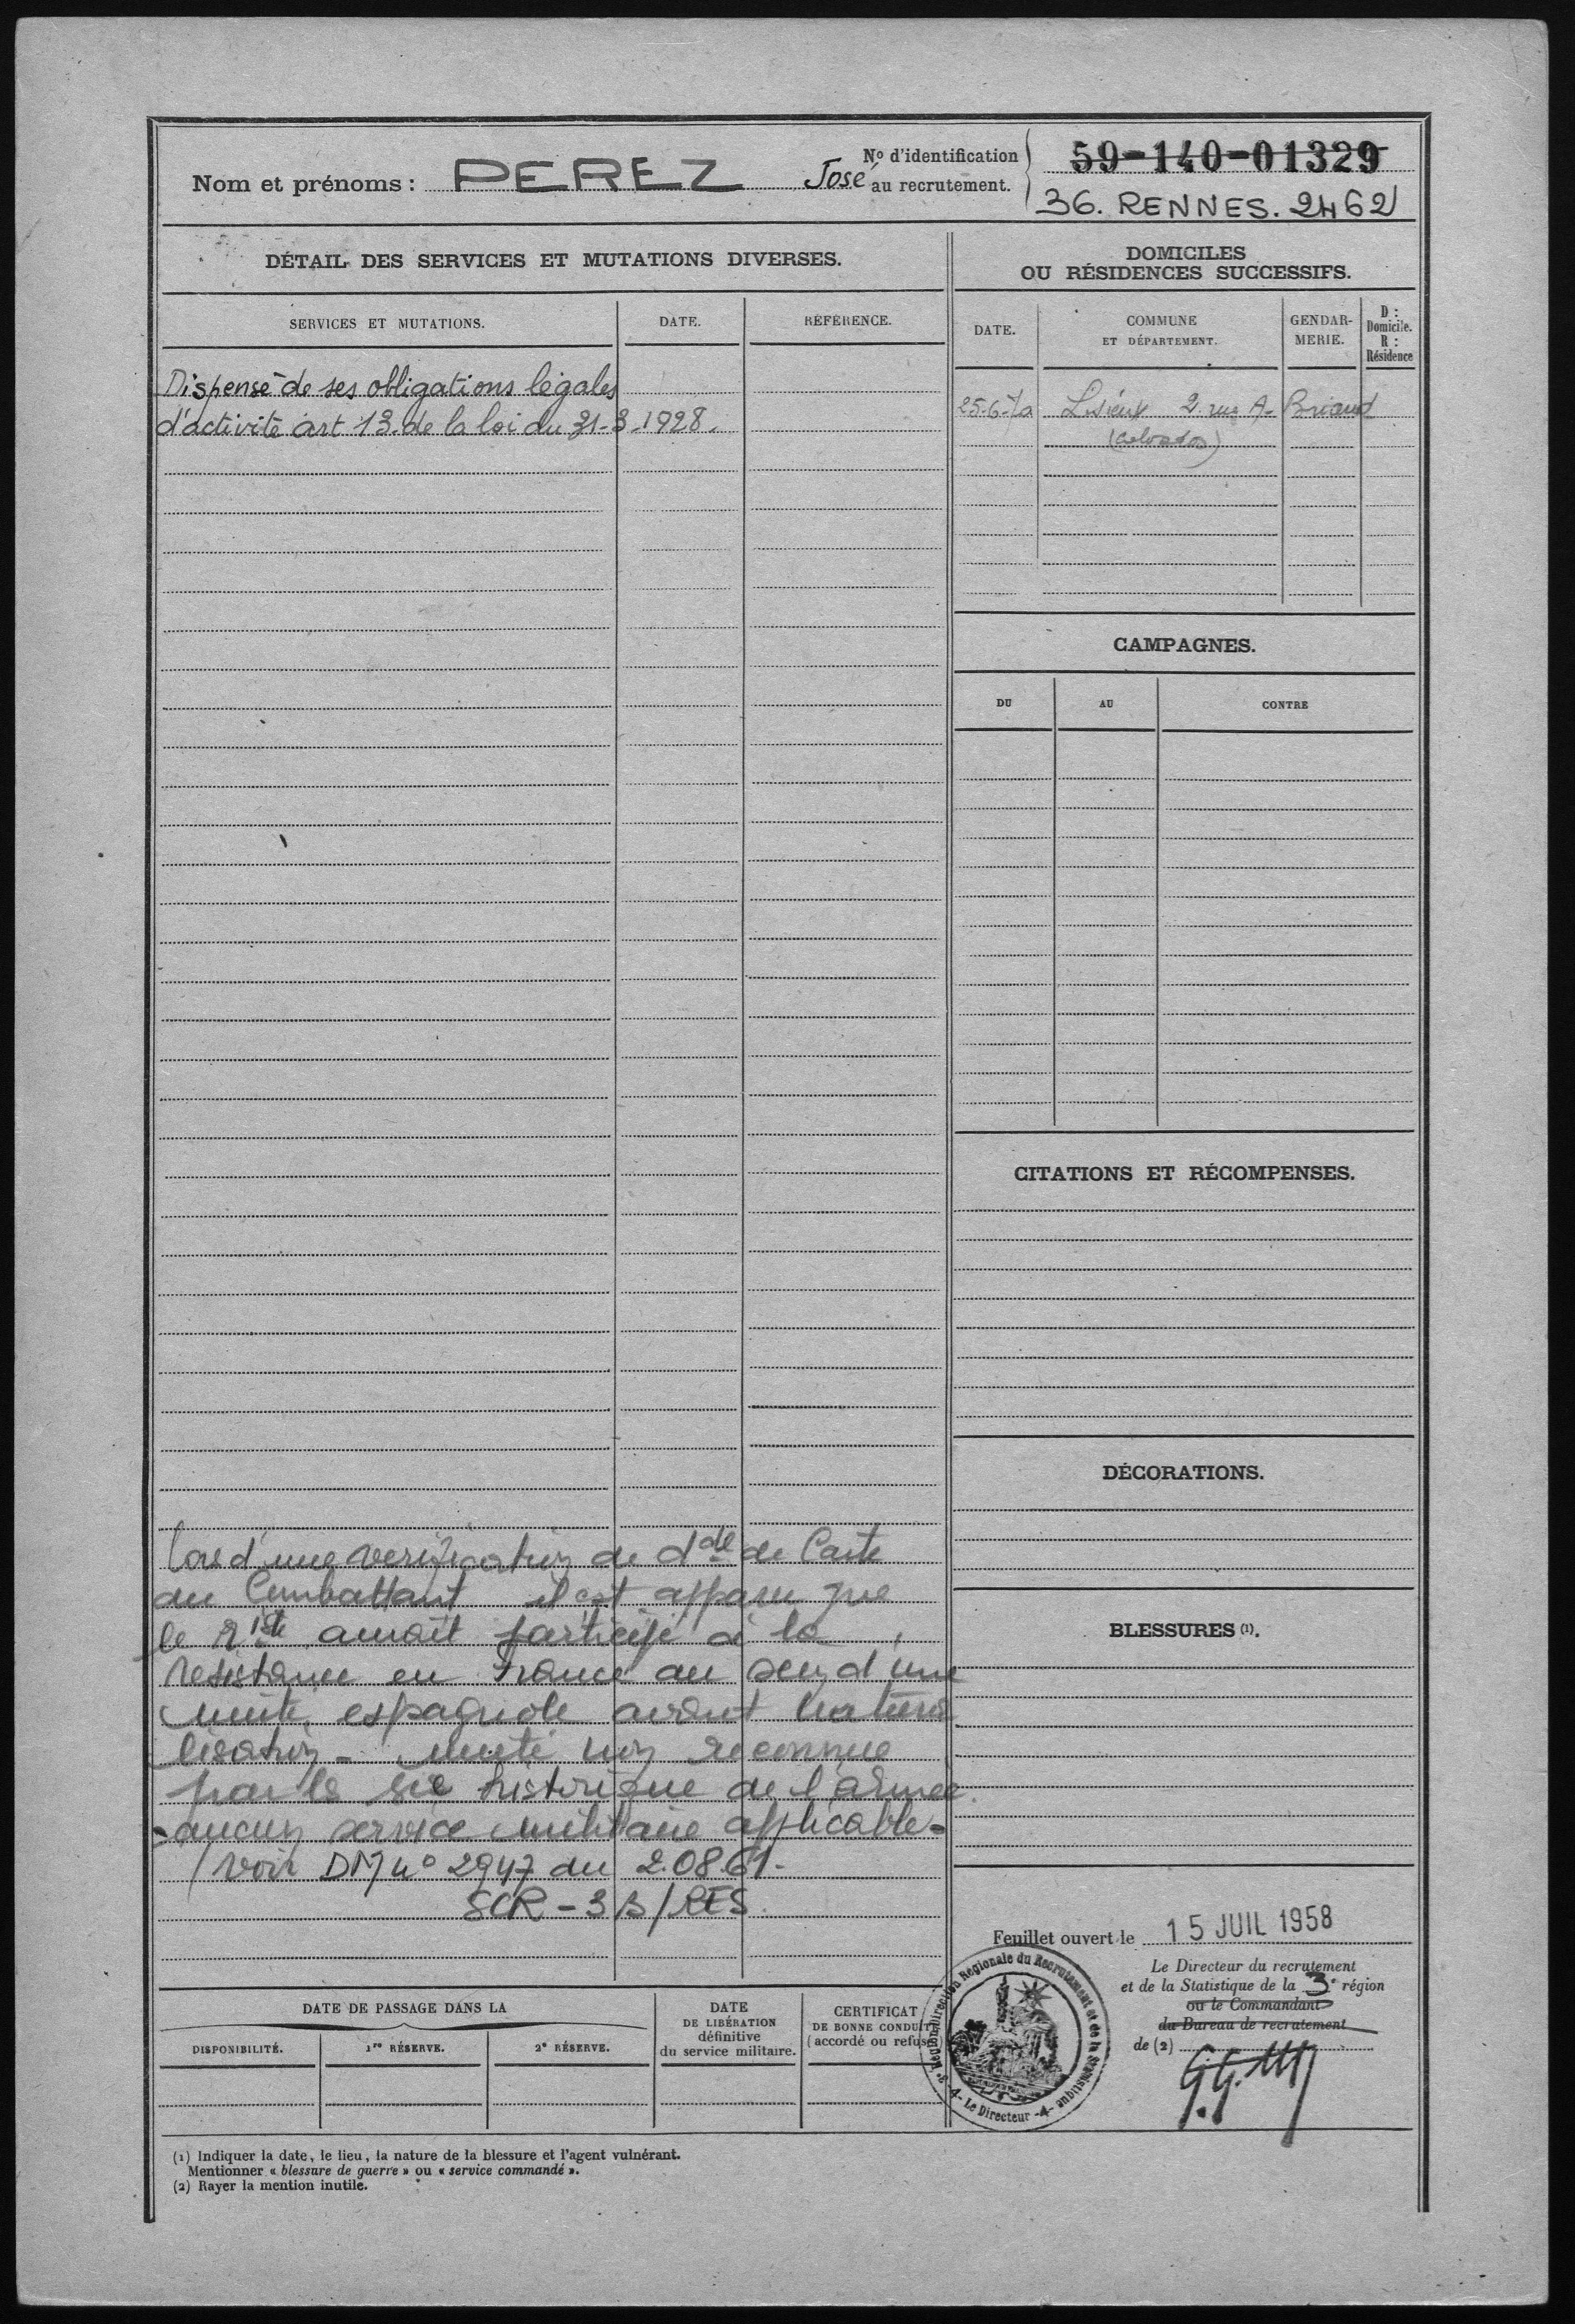 Nom et prénoms : PEREZ José
N° d'identification
au recrutement.
59-140-01329
36. RENNES. 2462
DÉTAIL DES SERVICES ET MUTATIONS DIVERSES.
SERVICES ET MUTATIONS.
DATE.
RÉFÉRENCE.
Dispensé de ses obligations légales
d'activité art 13 de la loi du 31-3-1928.
lors d'une verification de dde de Carte
du Combattant il est apparu que
le r iste aurait participé à la
resistance en France au sein d'une
unité espagnole avant natura
lisation - unité non reconnue
par le sce historique de l'armée.
- aucun service militaire applicable -
(voir DM n° 2947 du 2.08.61-
SCR - 3 B/RES.
DATE DE PASSAGE DANS LA
DISPONIBILITÉ.
1re RÉSERVE.
2e RÉSERVE.
DATE
DE LIBÉRATION
définitive
du service militaire.
CERTIFICAT
DE BONNE CONDUITE
(accordé ou refusé)
DOMICILES
OU RÉSIDENCES SUCCESSIFS.
DATE.
COMMUNE
ET DÉPARTEMENT.
GENDAR-
MERIE.
D :
Domicile.
R :
Résidence
25-6-70 Lisieux 2 rue A- Briand
(Calvados)
CAMPAGNES.
DU
AU
CONTRE
CITATIONS ET RÉCOMPENSES.
DÉCORATIONS.
BLESSURES (1).
Feuillet ouvert le 15 JUIL 1958
Le Directeur du recrutement
et de la Statistique de la 3e région
ou le Commandant
du Bureau de recrutement
de (2)
Direction Régionale du Recrutement et de la Statistique
-4- Le Directeur -4-
3e Région
(1) Indiquer la date, le lieu, la nature de la blessure et l'agent vulnérant.
Mentionner « blessure de guerre » ou « service commandé ».
(2) Rayer la mention inutile.